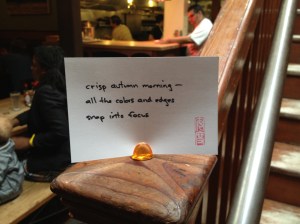 crisp autumn morning —
all the colors and edges
snap into focus